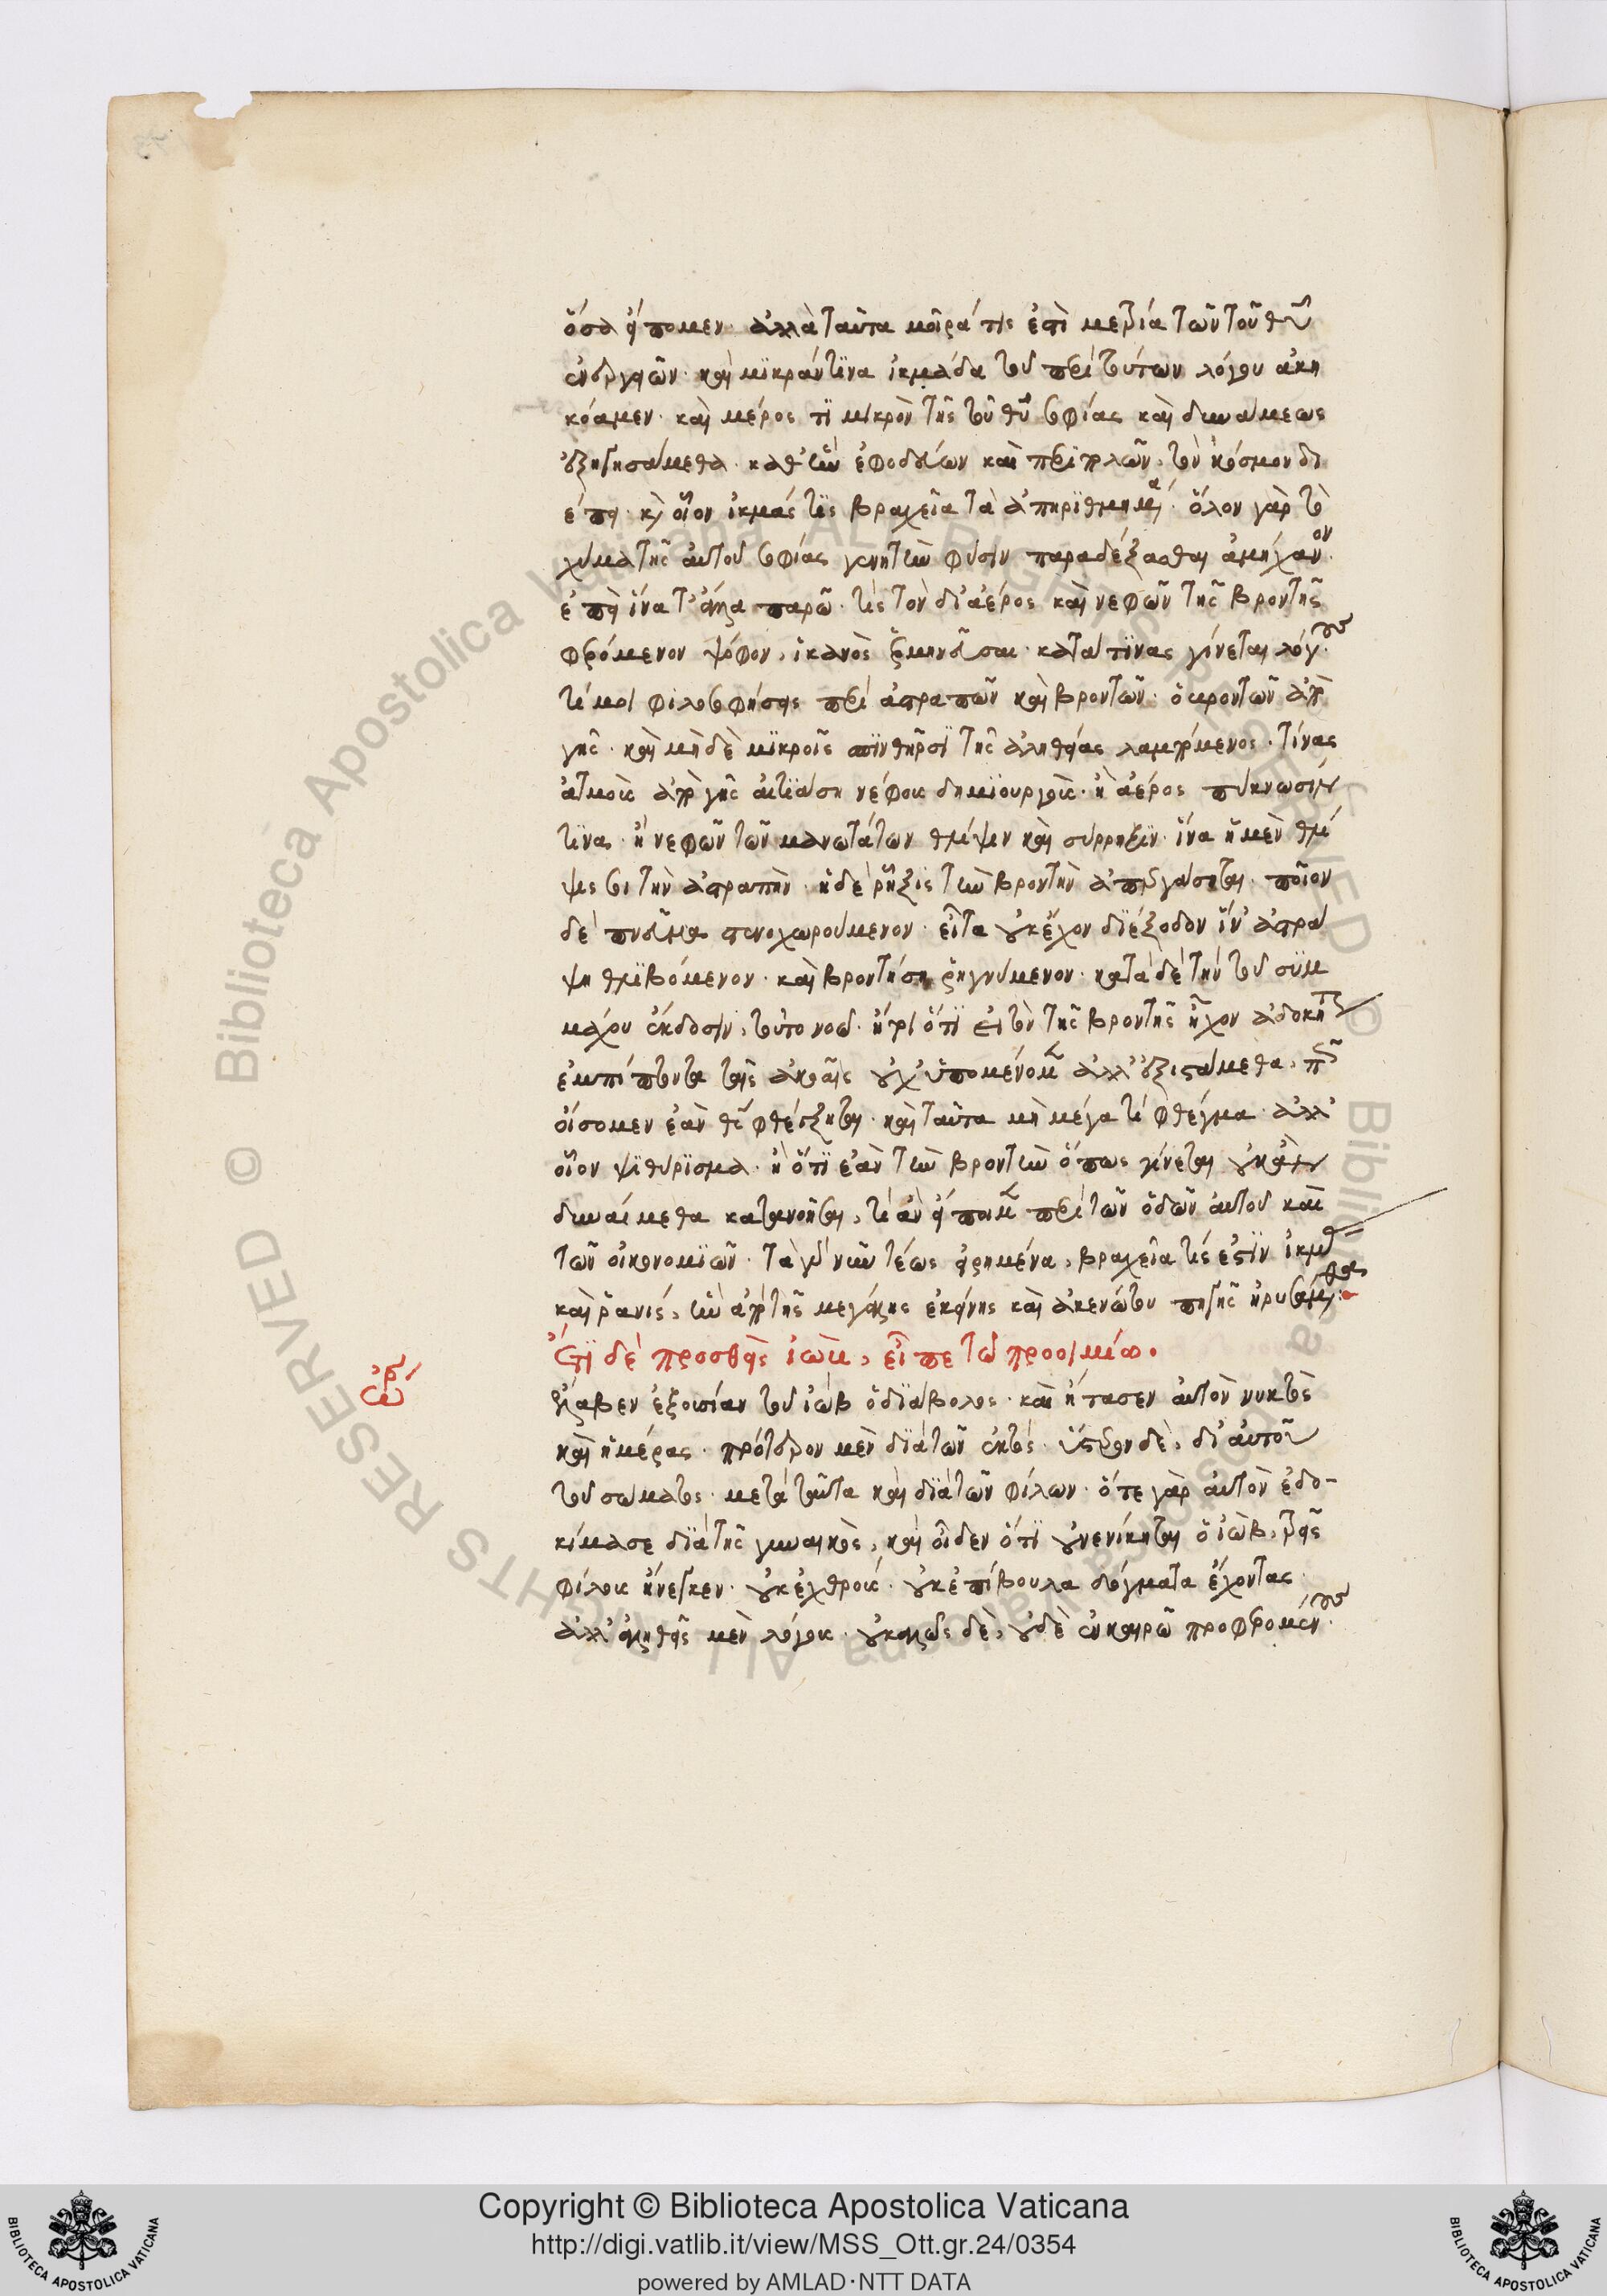 ὅσα εἴπομεν· ἀλλὰ ταῦτα μοῖρά τις ἐστὶ μετρία τῶν τοῦ θυ
ἐνεργειῶν· καὶ μικράν τινα ἰκμάδα τοῦ περὶ τούτων λόγου ἀκη
κόαμεν· καὶ μέρος τι μικρὸν τῆς τοῦ θυ σοφίας καὶ δυνάμεως
ἐξηγησάμεθα· καθ' ἣν ἐφοδεύων καὶ περιπολῶν, τὸν κόσμον δι
έπει· καὶ οἷον ἰκμάς τις βραχεῖα τὰ ἀπηριθμημένα· ὅλον γὰρ τὸ
χύμα τῆς αὐτοῦ σοφίας γενητὴν φύσιν παραδέξασθαι ἀμήχανον·
ἐπεὶ ἵνα τ' ἄλλα παρῶ· τίς τὸν δι' ἀέρος καὶ νεφῶν τῆς βροντῆς
φερόμενον ψόφον, ἱκανὸς ἑρμηνεῦσαι· κατὰ τίνας γίνεται λόγους·
τί μοι φιλοσοφήσεις περὶ ἀστραπῶν καὶ βροντῶν· ὁ βροντῶν ἀπὸ
γῆς· καὶ μηδὲ μικροῖς σπινθῆρσι τῆς ἀληθείας λαμπόμενος· τίνας
ἀτμοὺς ἀπὸ γῆς αἰτιάσῃ νέφους δημιουργούς· ἢ ἀέρος πύκνωσίν
τινα· ἢ νεφῶν τῶν μανωτάτων θλίψιν καὶ σύρρηξιν· ἵνα ἡ μὲν θλί
ψις σοι τὴν ἀστραπὴν· ἡ δὲ ῥῆξις τὴν βροντὴν ἀπεργάσηται· ποῖον
δὲ πνεῦμα στενοχωρούμενον· εἶτα οὐκ ἔχον διέξοδον ἵν' ἀστρά
ψῃ θλιβόμενον· καὶ βροντήσῃ ῥηγνύμενον· κατὰ δὲ τὴν τοῦ συμ
μάχου ἔκδοσιν, τοῦτο νοεῖ· ἤτοι ὅτι εἰ τὸν τῆς βροντῆς ἦχον ἀδοκήτως
ἐμπίπτοντα ταῖς ἀκοαῖς οὐχ ὑπομένομεν ἀλλ' ἐξιστάμεθα, πῶς
οἴσομεν ἐὰν θς φθέγξηται· καὶ ταῦτα μὴ μέγα τι φθέγμα· ἀλλ'
οἷον ψιθύρισμα· ἢ ὅτι ἐὰν τὴν βροντὴν ὅπως γίνεται οὐκ ἂν
δυναίμεθα κατανοῆσαι, τί ἂν εἴποιμεν περὶ τῶν ὁδῶν αὐτοῦ καὶ
τῶν οἰκονομιῶν· τὰ γὰρ νῦν τέως εἰρημένα, βραχεῖα τίς ἐστιν ἰκμὰς
καὶ ῥανίς, ἣν ἀπὸ τῆς μεγάλης ἐκείνης καὶ ἀκενώτου πηγῆς ἠρυσάμεθα·
Ἔτι δὲ προσθεὶς ἰὼβ, εἶπε τῷ προοιμίῳ.
Ὠρ
Ἔλαβεν ἐξουσίαν τοῦ ἰὼβ ὁ διάβολος· καὶ ἤτασεν αὐτὸν νυκτὸς
καὶ ἡμέρας· πρότερον μὲν διὰ τῶν ἐκτός· ὕστερον δὲ, δι' αὐτοῦ
τοῦ σώματος· μετὰ ταῦτα καὶ διὰ τῶν φίλων· ὅτε γὰρ αὐτὸν ἐδο-
κίμασε διὰ τῆς γυναικὸς, καὶ οἶδεν ὅτι οὐ νενίκηται ὁ ἰὼβ, τρεῖς
φίλους ἤνεγκεν· οὐκ ἐχθρούς· οὐκ ἐπίβουλα δόγματα ἔχοντας·
ἀλλ' ἀληθεῖς μὲν λόγους· οὐ καλῶς δὲ, οὐδὲ ἐν καιρῷ προφερομένους·
Copyright © Biblioteca Apostolica Vaticana
http://digi.vatlib.it/view/MSS_Ott.gr.24/0354
powered by AMLAD·NTT DATA